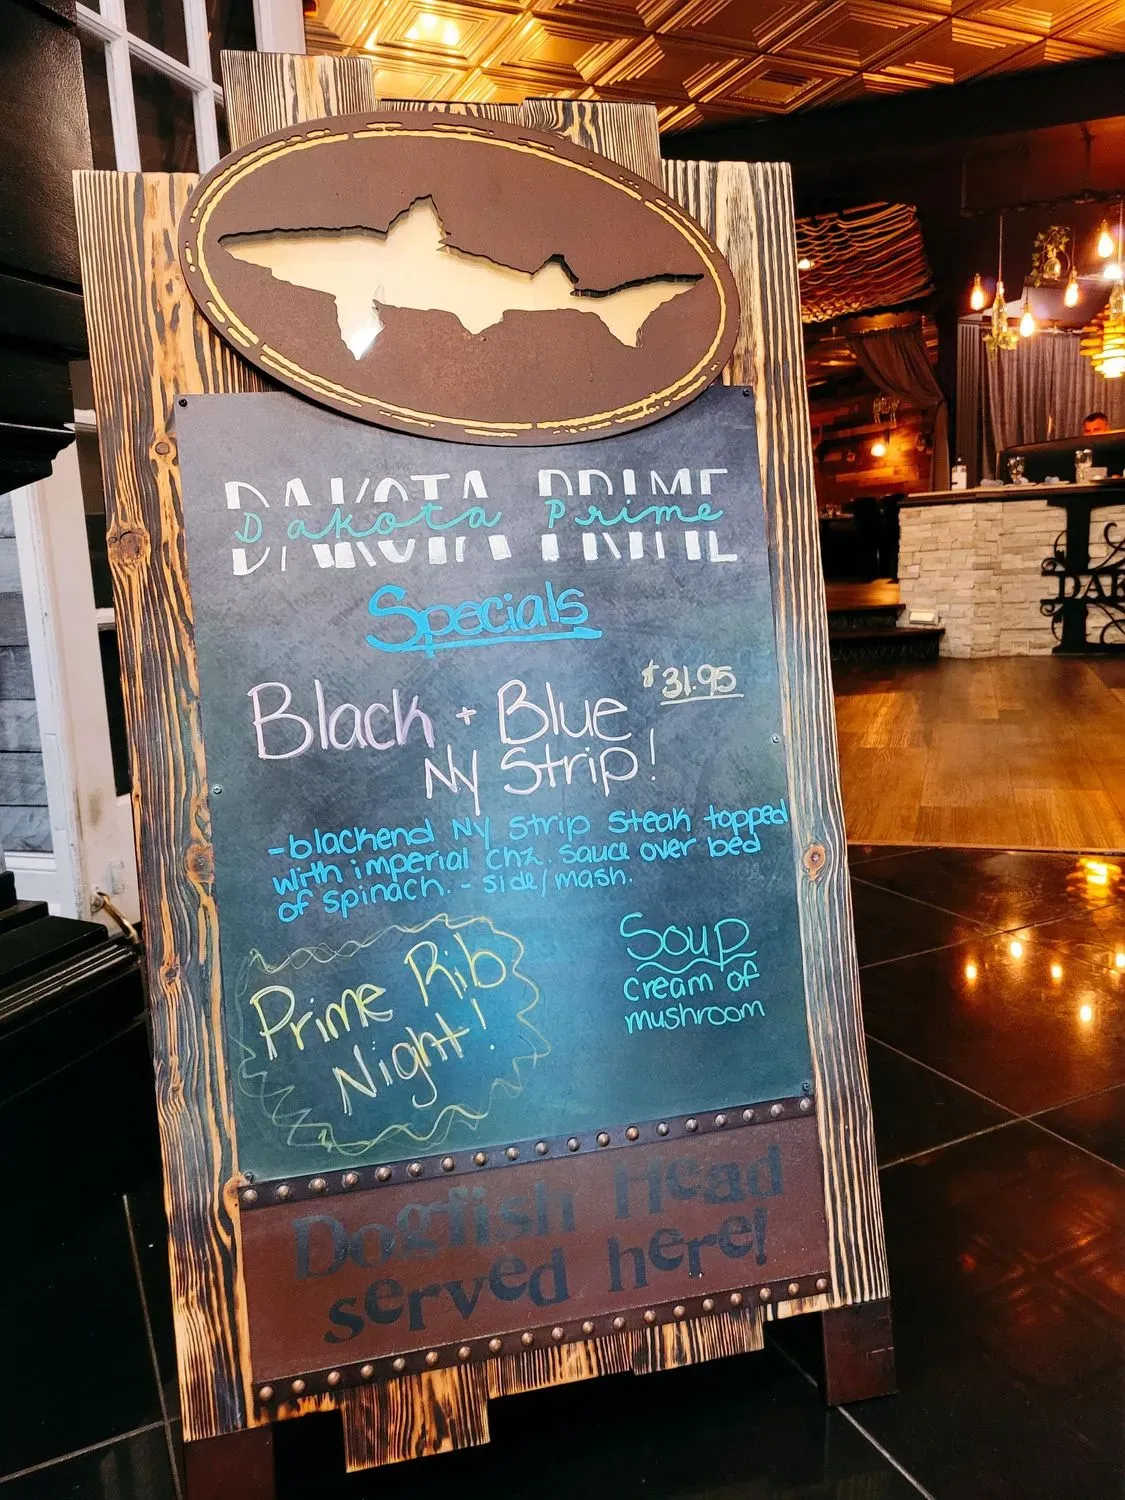 DAKOTA PRIME
Dakota Prime
Specials
Black + Blue $31.95
NY Strip!
-blackend NY Strip Steak topped
with imperial chz. sauce over bed
of spinach. - side/mash.
Prime Rib
Night!
Soup
cream of
mushroom
Dogfish Head
served here!
DAK